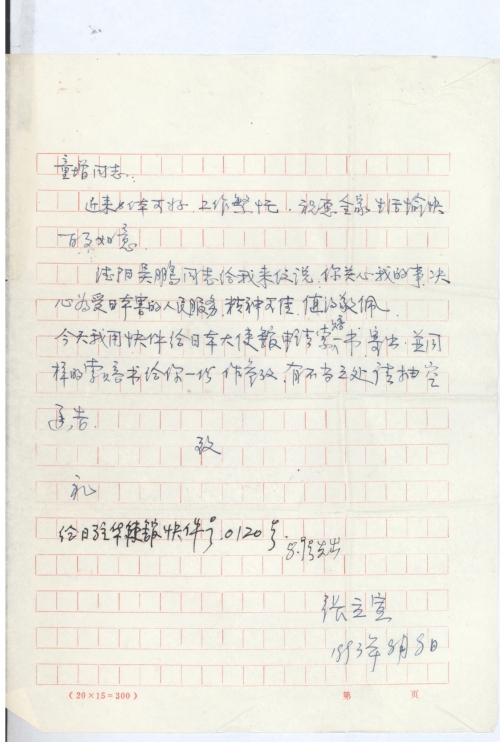 童增同志:
近来身体可好,工作繁忙,祝愿全家生活愉快
百事如意。
沈阳吴鹏同志给我来信说,你关心我的事,决
心为受日本害的人民服务,精神可佳,值得敬佩。
今天我用快件给日本大使馆申请索赔一书寄出,并同
样的索赔书给你一份作参考,有不当之处请抽空
通告
致
礼
给日驻华使馆快件号0120号
8.9寄出
张立宣
1993年8月9日
(20×15=300)
第 页